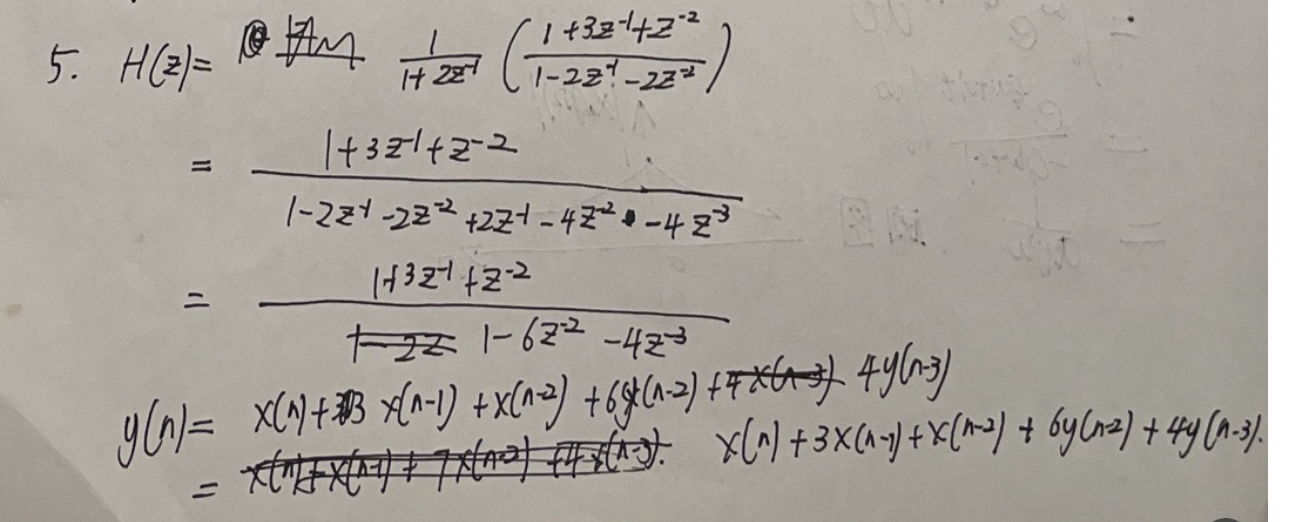 5. H(z) = 1/(1+2z⁻¹) ( (1+3z⁻¹+z⁻²)/(1-2z⁻¹-2z⁻²) )
= (1+3z⁻¹+z⁻²)/(1-2z⁻¹-2z⁻²+2z⁻¹-4z⁻²-4z⁻³)
= (1+3z⁻¹+z⁻²)/(1-6z⁻²-4z⁻³)
y(n) = x(n)+3x(n-1)+x(n-2)+6y(n-2)+4y(n-3)
= x(n)+3x(n-1)+x(n-2)+6y(n-2)+4y(n-3).